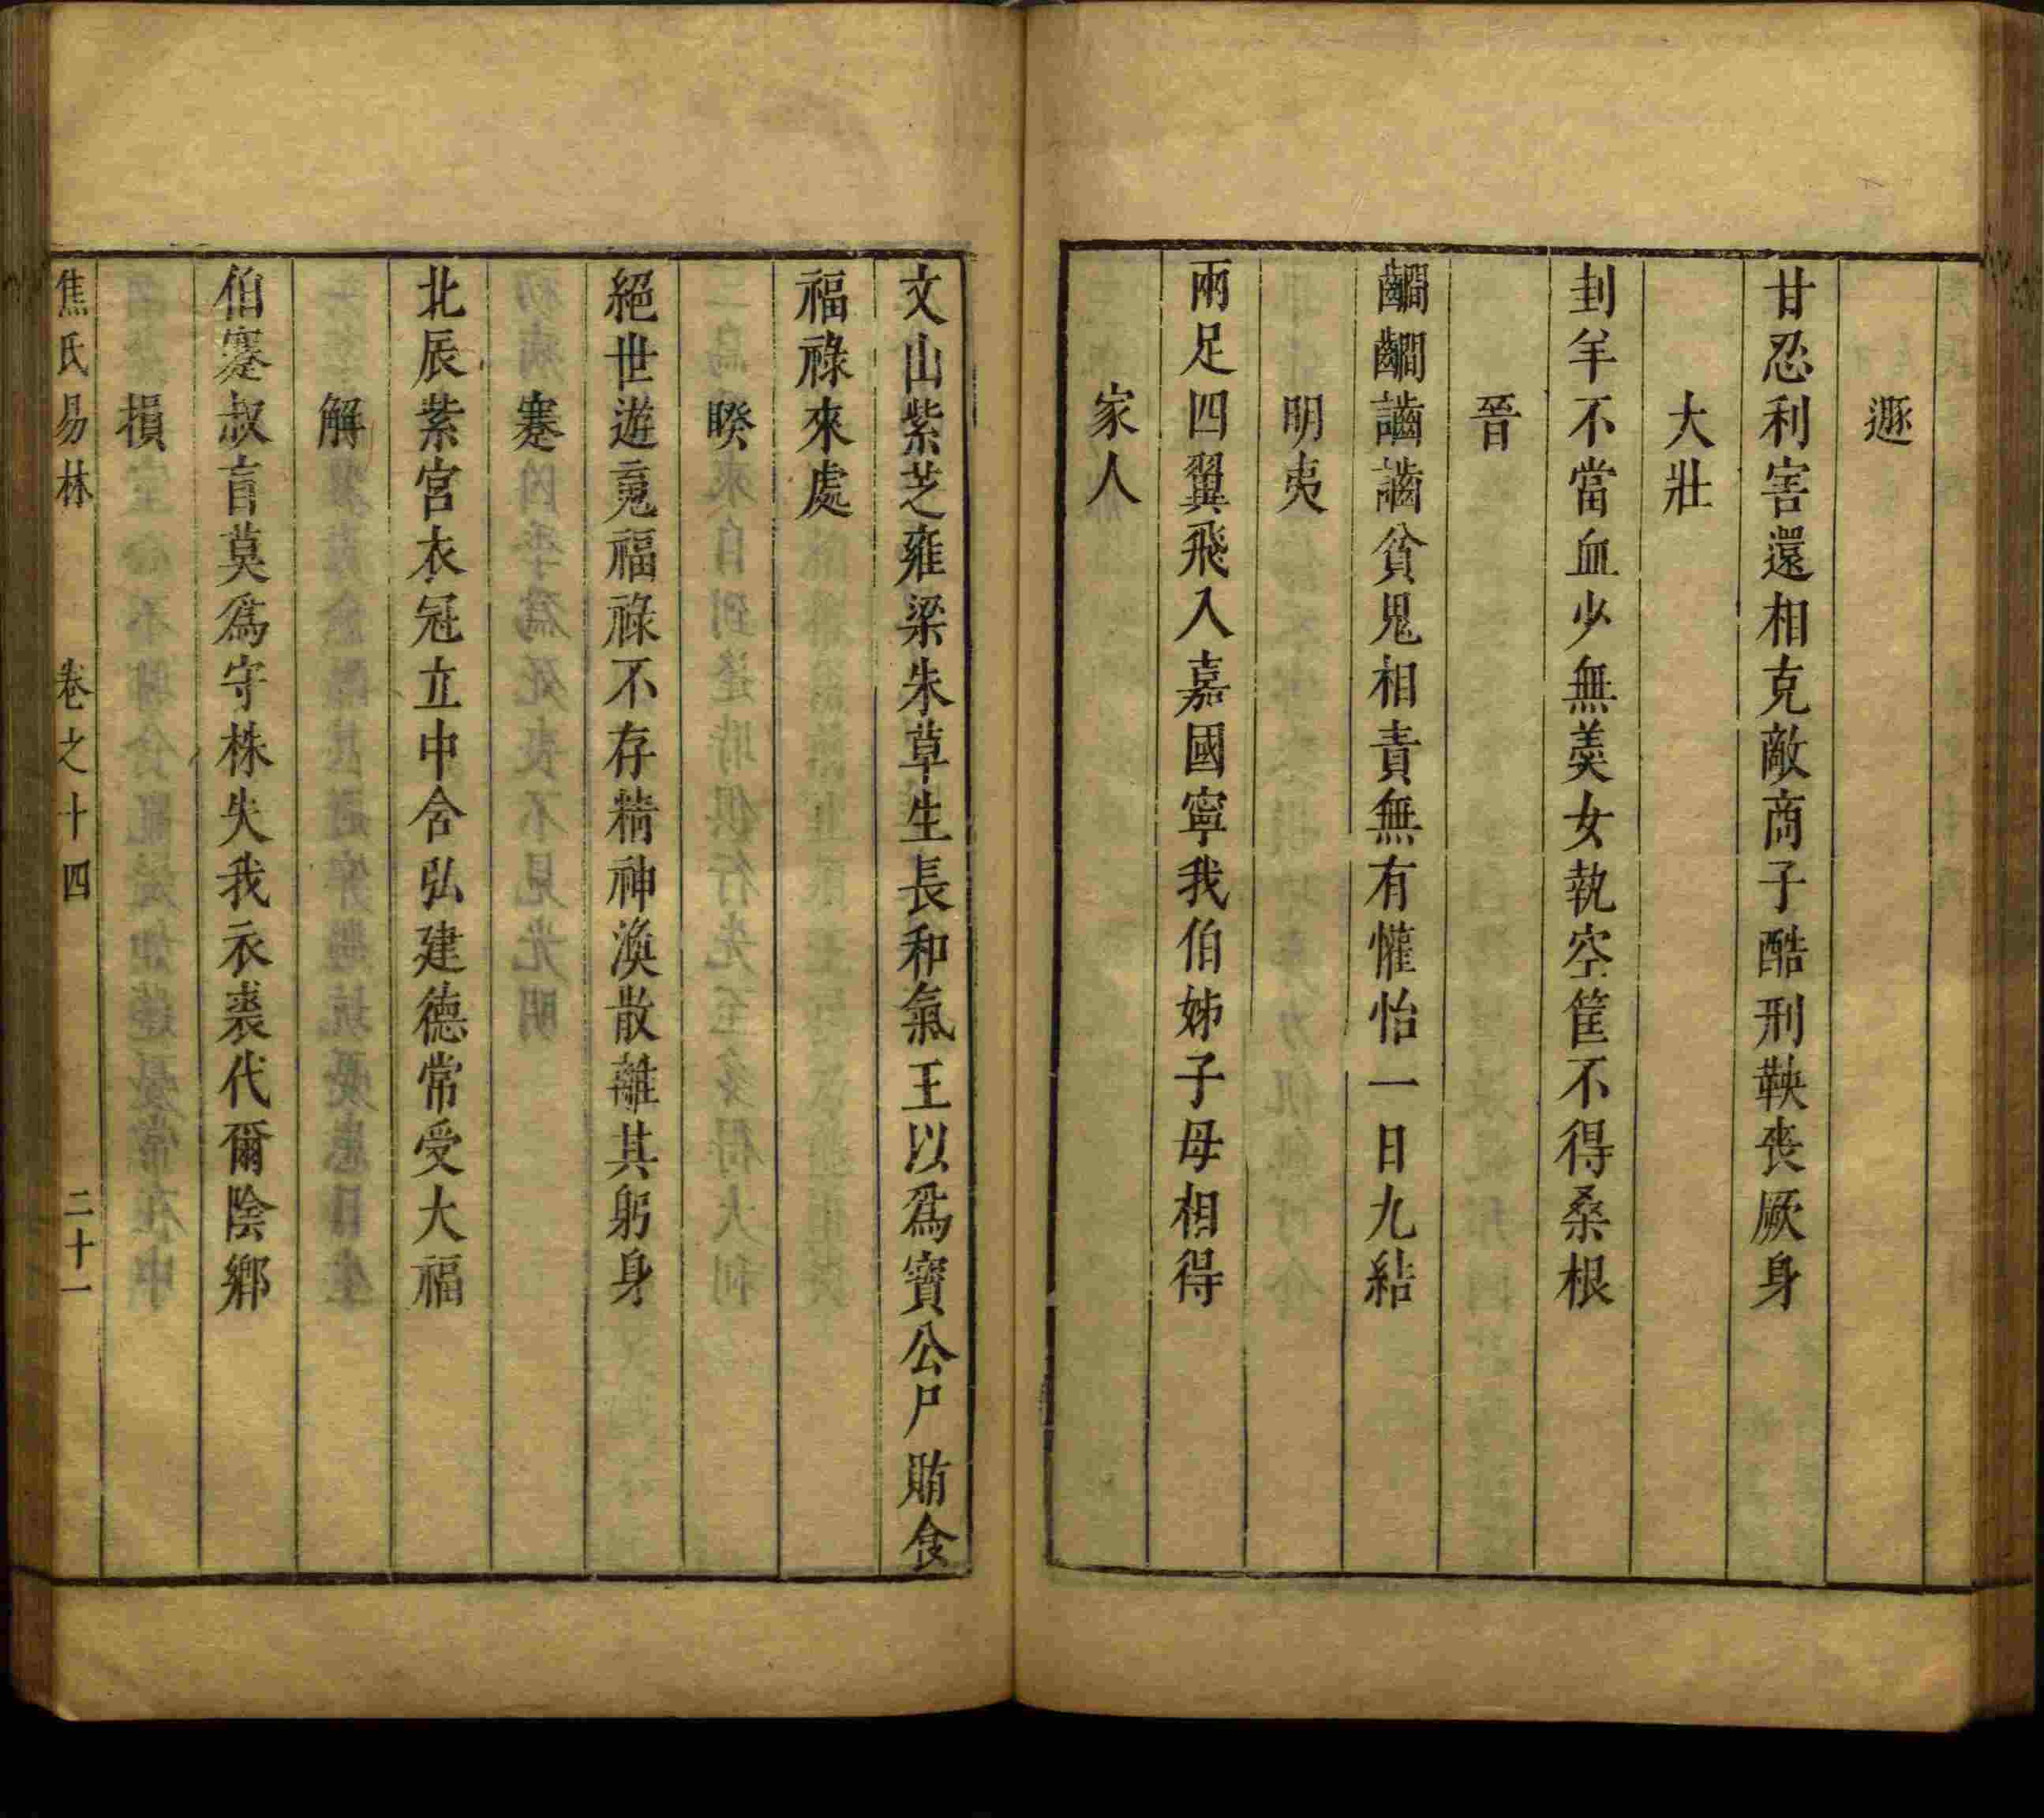 遯
甘忍利害還相克敵商子酷刑鞅丧厥身
大壯
刲羊不當血少無羮女執空筐不得桑根
晉
齫齫齧齧貧鬼相責無有懽怡一日九結
明夷
兩足四翼飛入嘉國寧我伯姊子母相得
家人
文山紫芝雍梁朱草生長和氣王以爲寳公尸賄食
福祿來處
睽
絕世遊䰟福祿不存精神渙散離其躬身
蹇
北辰紫宮衣冠立中含弘建德常受大福
解
伯蹇叔盲莫爲守株失我衣裘代爾陰鄉
損
焦氏易林 卷之十四 二十一